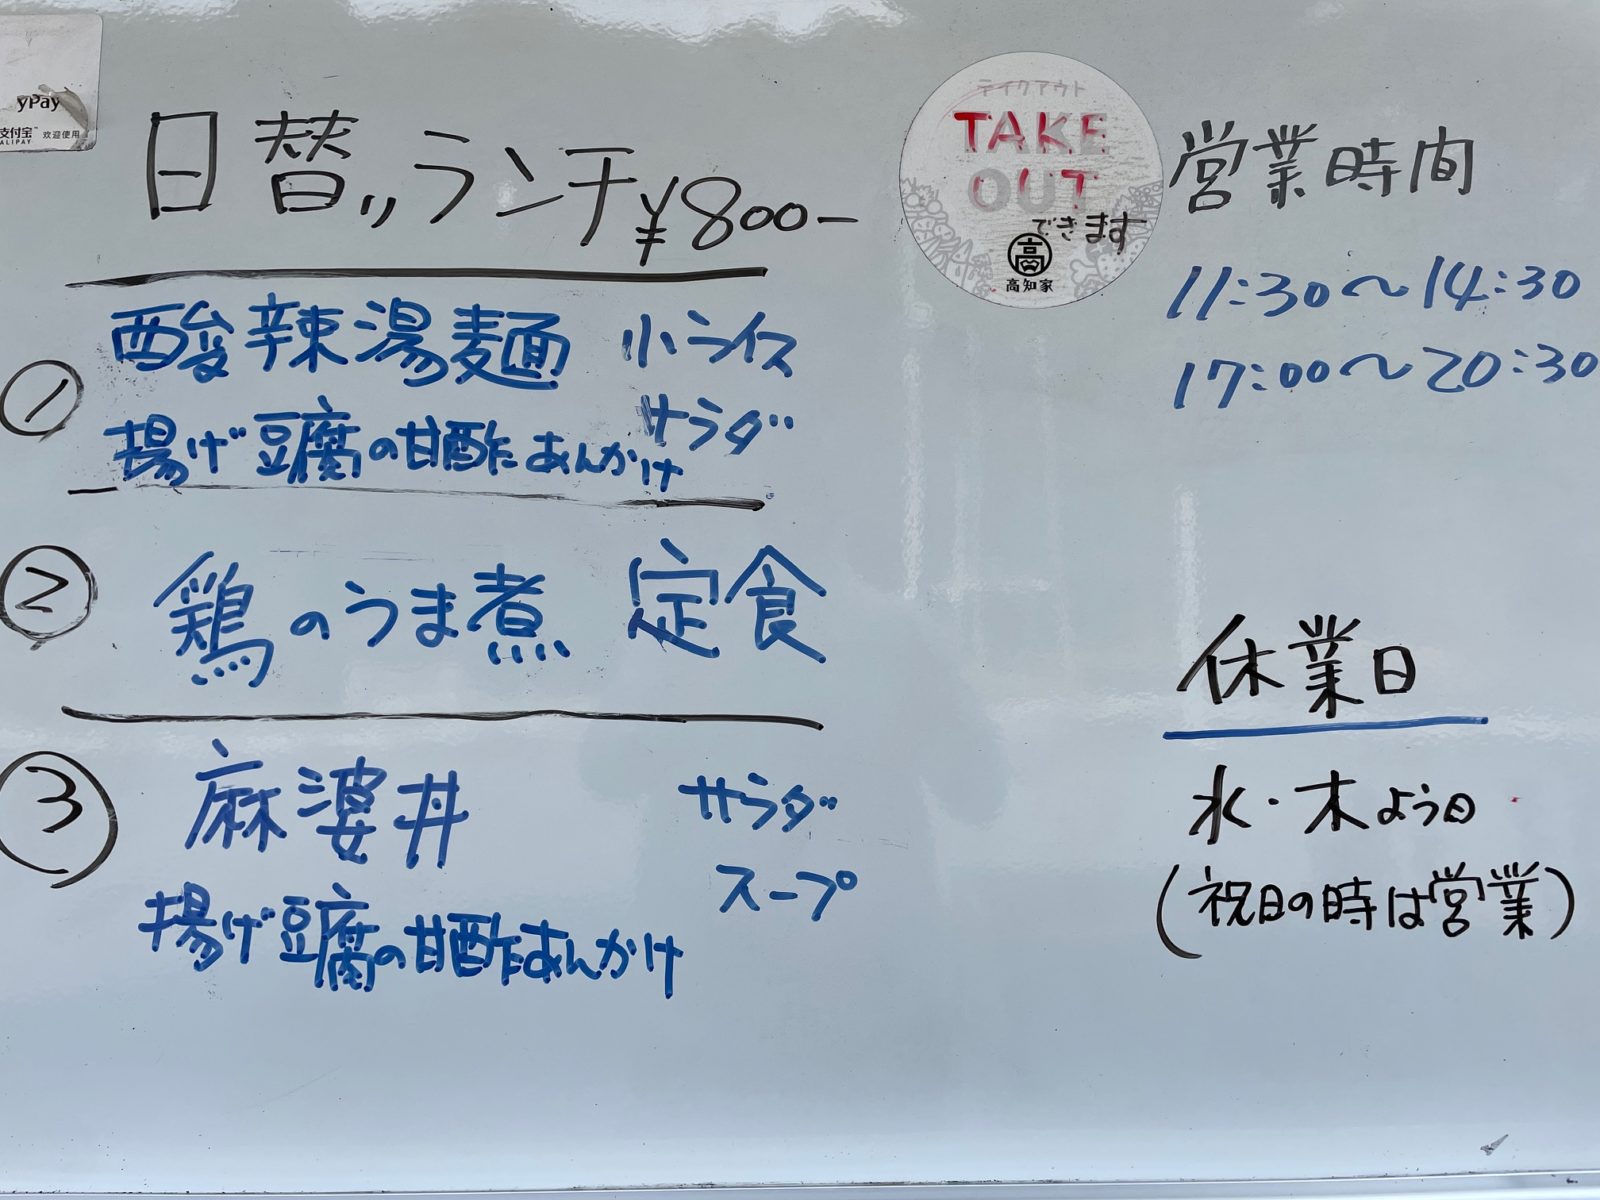 yPay
支付宝™ 欢迎使用
ALIPAY
日替りランチ ¥800-
① 酸辣湯麺 小ライス
サラダ
揚げ豆腐の甘酢あんかけ
② 鶏のうま煮 定食
③ 麻婆丼 サラダ
スープ
揚げ豆腐の甘酢あんかけ
テイクアウト
TAKE
OUT
できます
高
高知家
営業時間
11:30〜14:30
17:00〜20:30
休業日
水・木よう日
(祝日の時は営業)